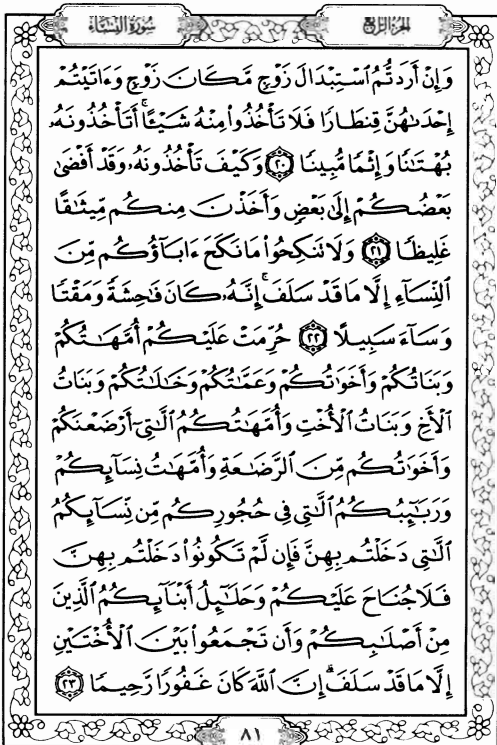 سُورَةُ النِّسَاءِ الجُزءُ الرَّابِعُ
وَإِنْ أَرَدتُّمُ ٱسْتِبْدَالَ زَوْجٍ مَّكَانَ زَوْجٍ وَءَاتَيْتُمْ
إِحْدَىٰهُنَّ قِنطَارًا فَلَا تَأْخُذُوا۟ مِنْهُ شَيْـًٔا ۚ أَتَأْخُذُونَهُۥ
بُهْتَـٰنًا وَإِثْمًا مُّبِينًا ﴿٢٠﴾ وَكَيْفَ تَأْخُذُونَهُۥ وَقَدْ أَفْضَىٰ
بَعْضُكُمْ إِلَىٰ بَعْضٍ وَأَخَذْنَ مِنكُم مِّيثَـٰقًا
غَلِيظًا ﴿٢١﴾ وَلَا تَنكِحُوا۟ مَا نَكَحَ ءَابَآؤُكُم مِّنَ
ٱلنِّسَآءِ إِلَّا مَا قَدْ سَلَفَ ۚ إِنَّهُۥ كَانَ فَـٰحِشَةً وَمَقْتًا
وَسَآءَ سَبِيلًا ﴿٢٢﴾ حُرِّمَتْ عَلَيْكُمْ أُمَّهَـٰتُكُمْ
وَبَنَاتُكُمْ وَأَخَوَٰتُكُمْ وَعَمَّـٰتُكُمْ وَخَـٰلَـٰتُكُمْ وَبَنَاتُ
ٱلْأَخِ وَبَنَاتُ ٱلْأُخْتِ وَأُمَّهَـٰتُكُمُ ٱلَّـٰتِىٓ أَرْضَعْنَكُمْ
وَأَخَوَٰتُكُم مِّنَ ٱلرَّضَـٰعَةِ وَأُمَّهَـٰتُ نِسَآئِكُمْ
وَرَبَـٰٓئِبُكُمُ ٱلَّـٰتِى فِى حُجُورِكُم مِّن نِّسَآئِكُمُ
ٱلَّـٰتِى دَخَلْتُم بِهِنَّ فَإِن لَّمْ تَكُونُوا۟ دَخَلْتُم بِهِنَّ
فَلَا جُنَاحَ عَلَيْكُمْ وَحَلَـٰٓئِلُ أَبْنَآئِكُمُ ٱلَّذِينَ
مِنْ أَصْلَـٰبِكُمْ وَأَن تَجْمَعُوا۟ بَيْنَ ٱلْأُخْتَيْنِ
إِلَّا مَا قَدْ سَلَفَ ۗ إِنَّ ٱللَّهَ كَانَ غَفُورًا رَّحِيمًا ﴿٢٣﴾
٨١